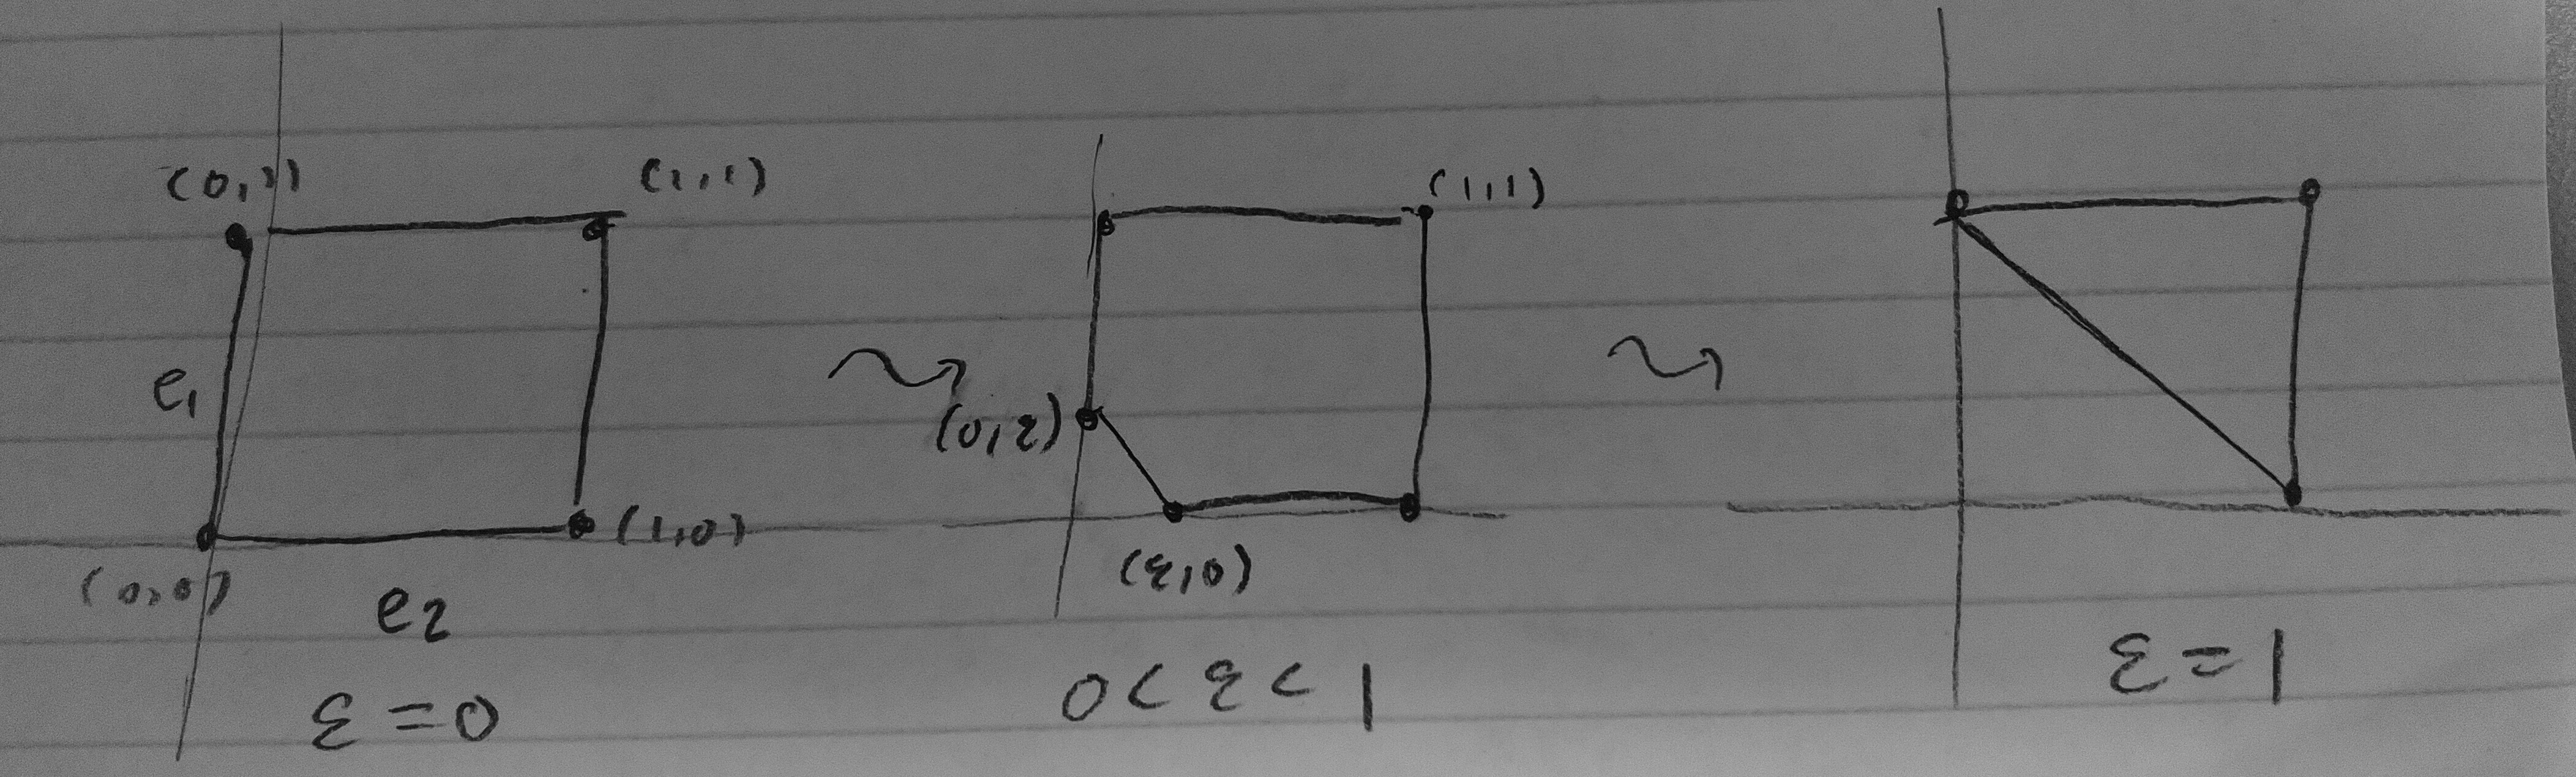 (0,1) (1,1)
e1
(0,0) (1,0)
e2
ε = 0
(1,1)
(0,ε)
(ε,0)
0 < ε < 1
ε = 1